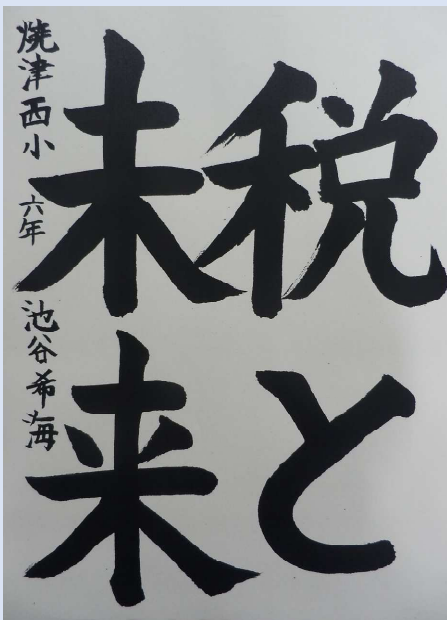 税と
未来
焼津西小 六年 池谷希海